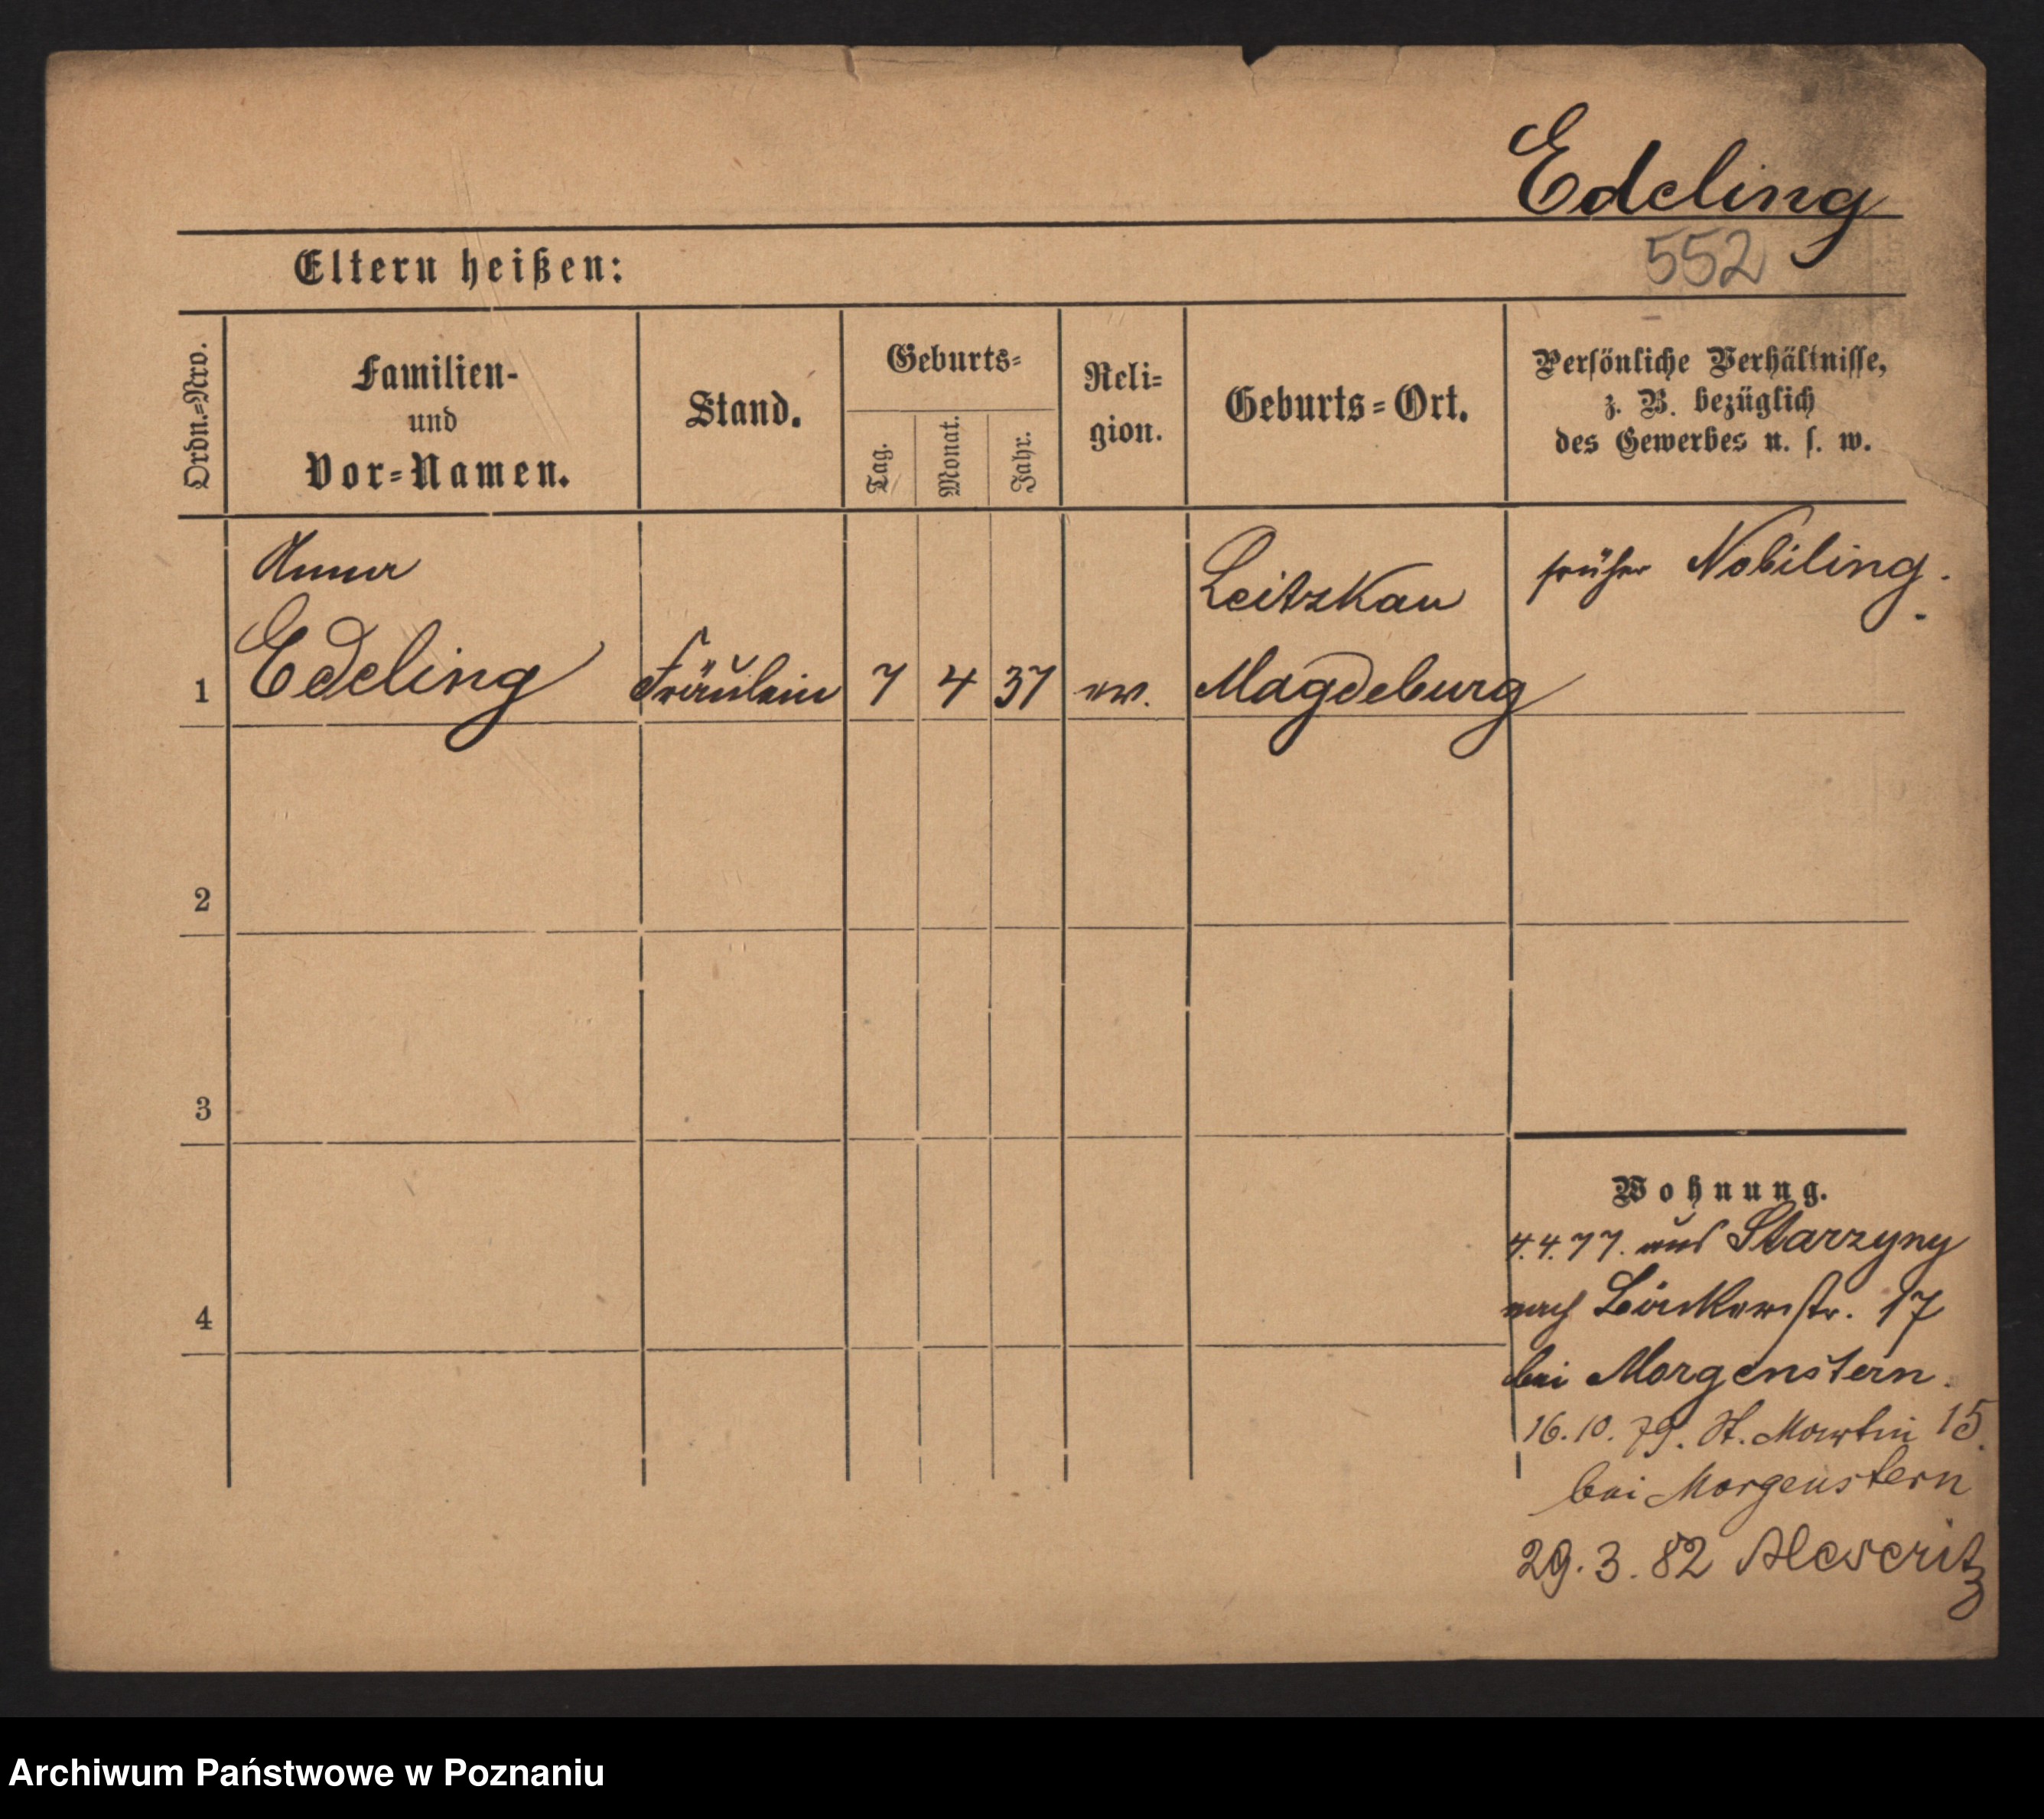 Edeling
552
Eltern heißen:
Ordn.=Nro.
Familien-
und
Vor=Namen.
Stand.
Geburts=
Tag.
Monat.
Jahr.
Reli=
gion.
Geburts=Ort.
Persönliche Verhältnisse,
z. B. bezüglich
des Gewerbes u. s. w.
Anna
Edeling
1
Fräulein
7
4
37
ev.
Leitzkau
Magdeburg
früher Nobiling.
2
3
4
Wohnung.
4.4.77. aus Starzyny
nach 17
bei Morgenstern.
16.10.79. St. Martin 15.
bei Morgenstern
29.3.82 Meseritz
Archiwum Państwowe w Poznaniu